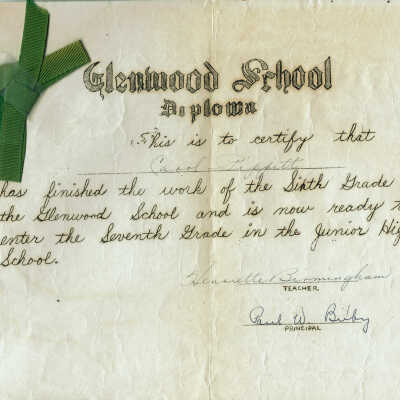 Glenwood School
Diploma
This is to certify that
Carol Tippitt
has finished the work of the Sixth Grade
the Glenwood School and is now ready t
enter the Seventh Grade in the Junior Hig
School.
Henrietta Birmingham
TEACHER
Paul W. Bixby
PRINCIPAL